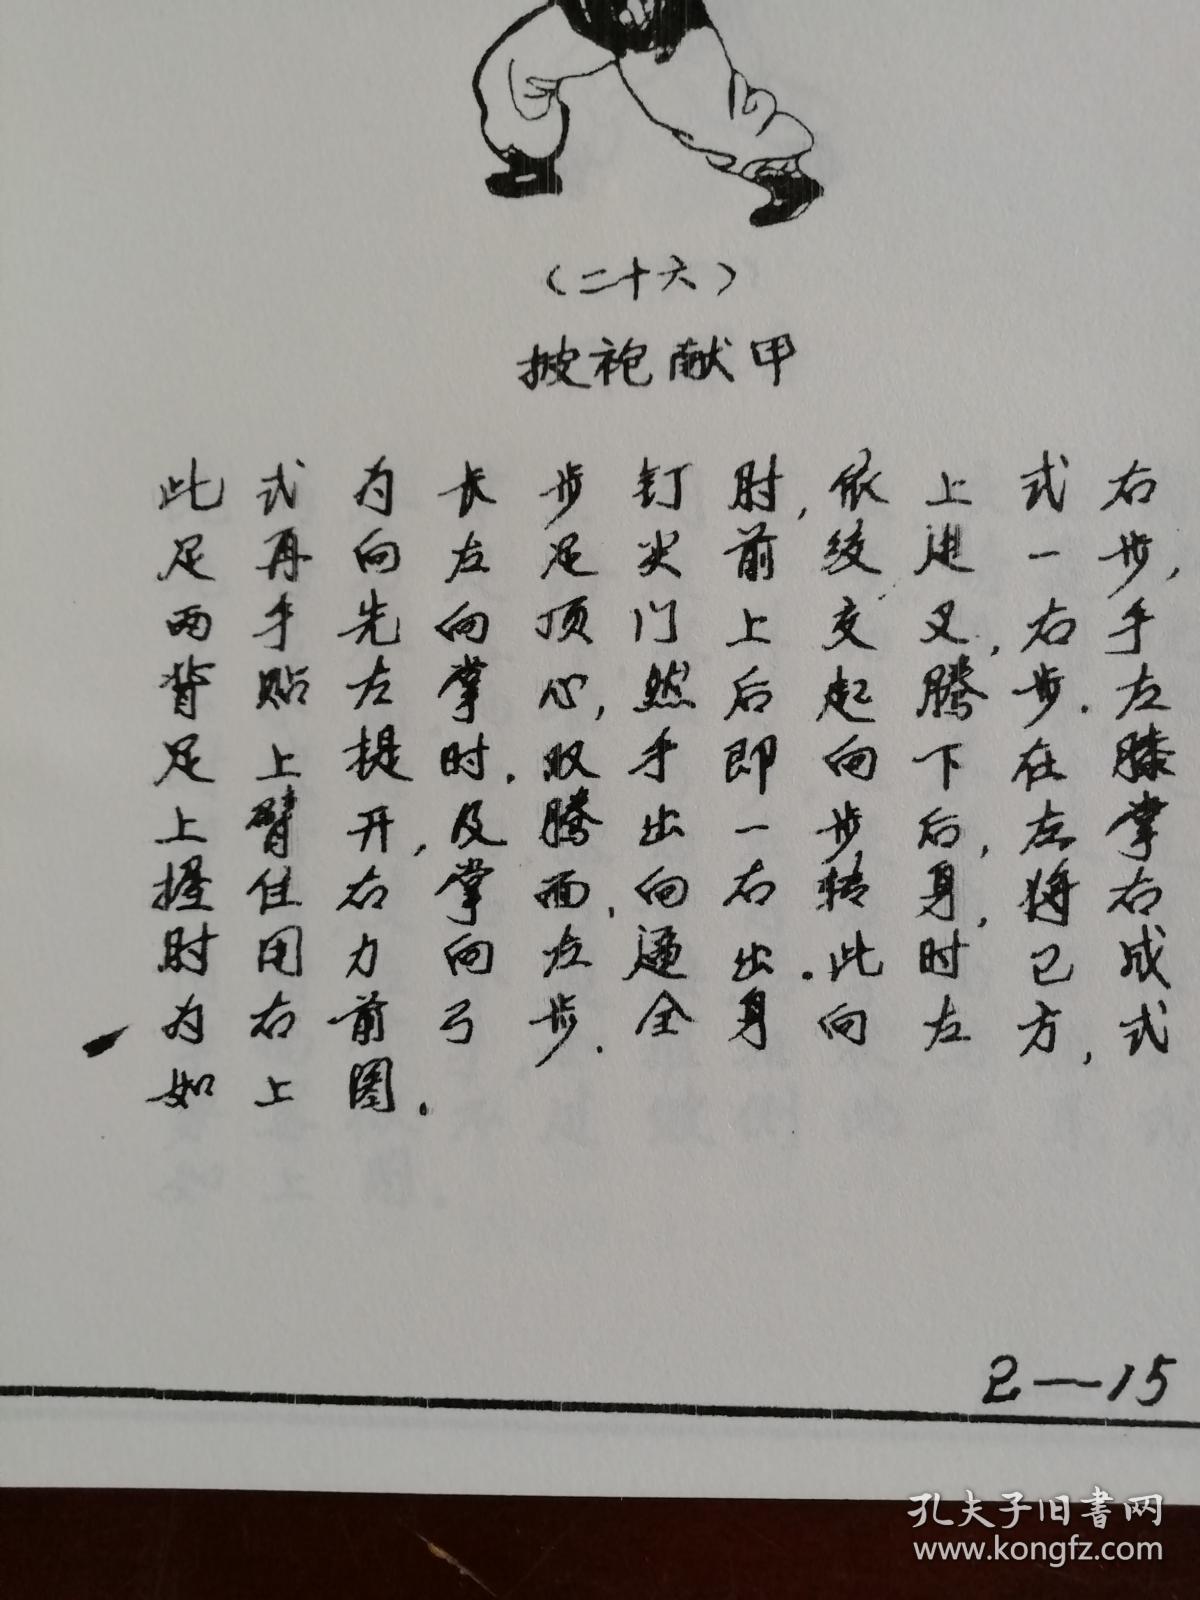 (二十六)
披袍献甲
此式为长步钉肘,依上式右
足再向左足尖前绞进一步,
两手先向顶门上交叉,右手
背贴左掌心,然后起腾步.左
足上提时.双手即向下在膝
上臂开,及腾出一步后,左掌
握住右掌面,向右转身,将右
肘用力向左逼出.此时已成
为右前弓步.全身向左方,式
如上图.
2—15
孔夫子旧书网
www.kongfz.com